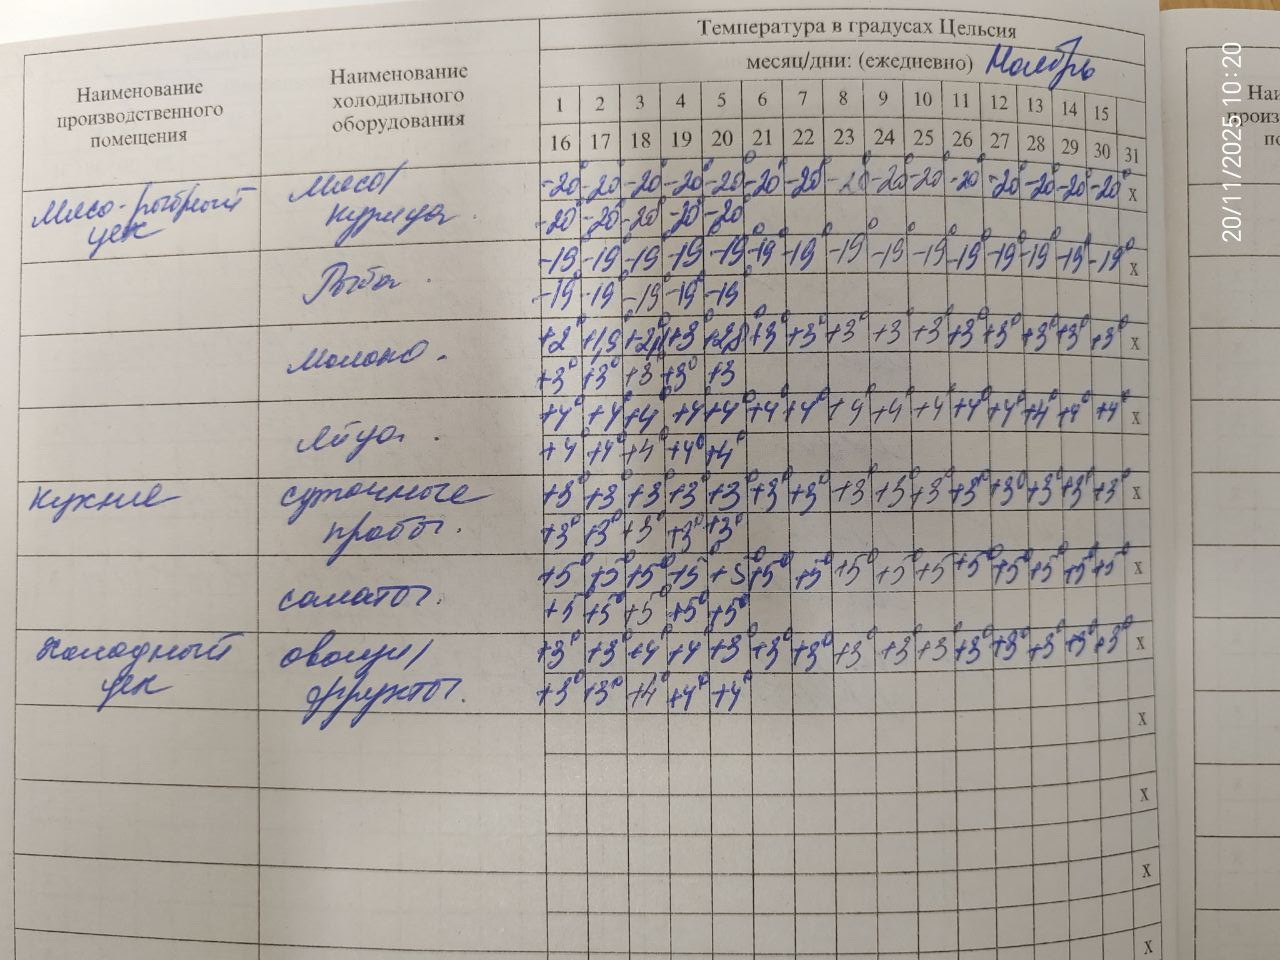 Температура в градусах Цельсия
месяц/дни: (ежедневно) Ноябрь
Наименование
производственного
помещения
Наименование
холодильного
оборудования
1 2 3 4 5 6 7 8 9 10 11 12 13 14 15
16 17 18 19 20 21 22 23 24 25 26 27 28 29 30 31
Мясо-рыбный цех
Мясо/
курица.
-20° -20° -20° -20° -20° -20° -20° -20° -20° -20° -20° -20° -20° -20° -20° х
-20° -20° -20° -20° -20°
Рыба.
-19° -19° -19° -19° -19° -19° -19° -19° -19° -19° -19° -19° -19° -19° -19° х
-19° -19° -19° -19° -19°
Молоко.
+2° +1,9 +3 +2,8 +3° +3° +3° +3° +3° +3° +3° +3° +3° +3° х
+3° +3° +3 +3° +3
Яйца.
+4° +4° +4° +4 +4° +4° +4° +4° +4° +4 +4° +4° +4° +4° +4° х
+4 +4° +4° +4° +4°
Кухня
суточные
пробы.
+3° +3° +3° +3° +3° +3° +3° +3° +3° +3° +3° +3° +3° +3° +3° х
+3° +3° +3° +3° +3°
салаты.
+5° +5° +5° +5 +5° +5° +5° +5° +5° +5 +5° +5° +5° +5° +5° х
+5° +5° +5° +5° +5°
Холодный
цех
овощи/
фрукты.
+3° +3° +4 +4° +3° +3° +3° +3° +3° +3° +3° +3° +3° +3° +3° х
+3° +3° +4° +4° +4°
х
х
х
х
20/11/2025 10:20